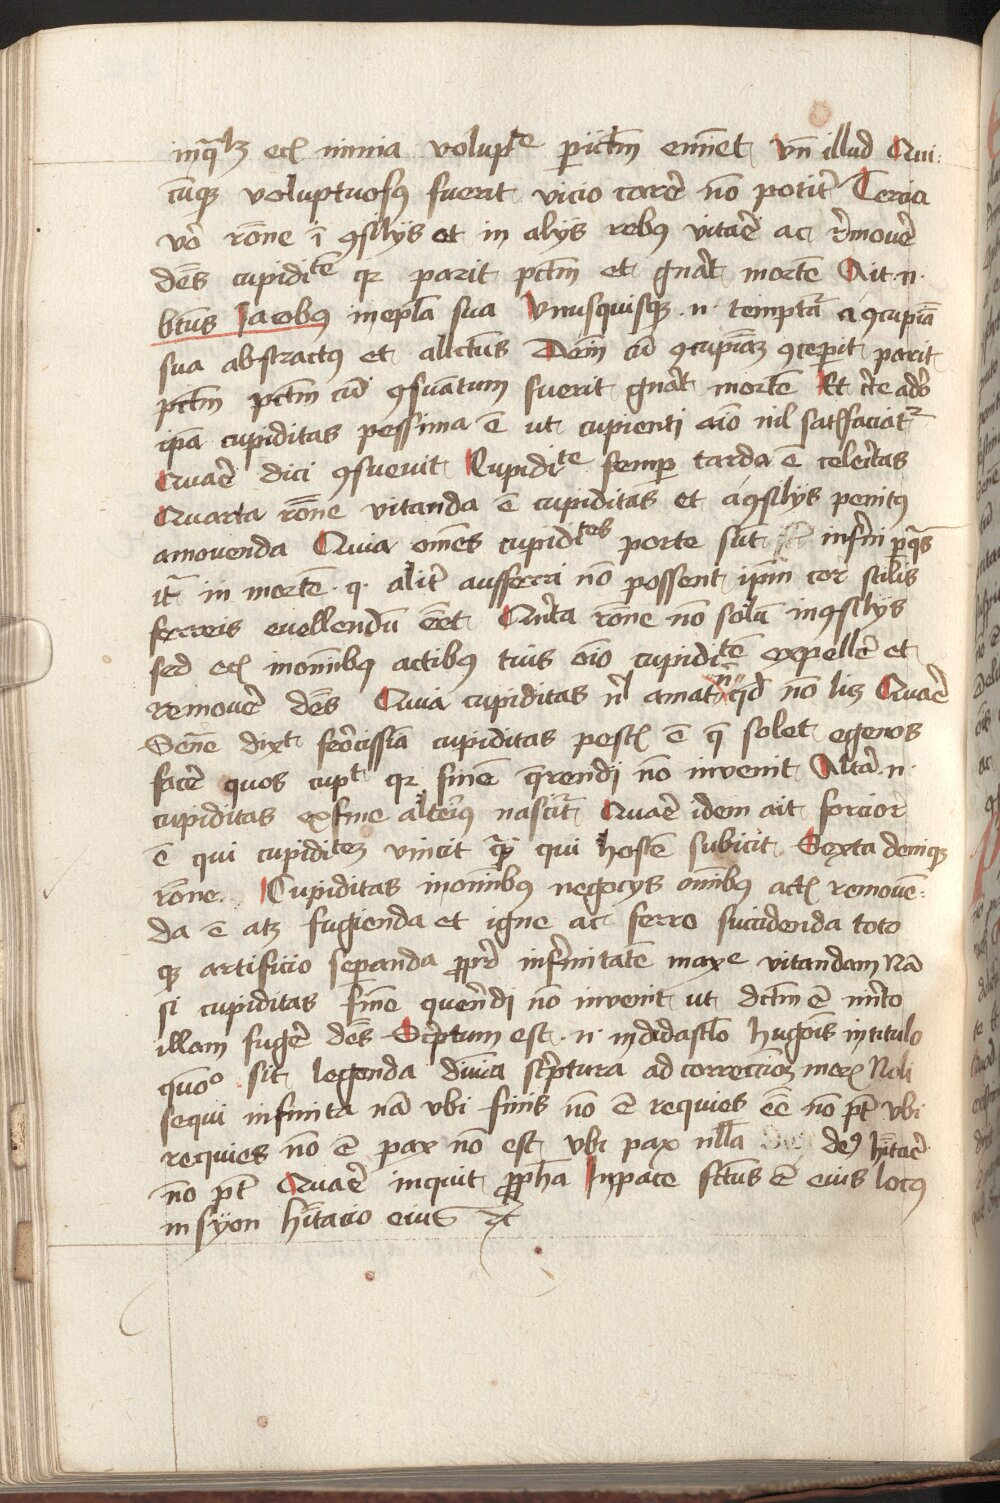 inq̄lꝫ eciā nimia volupte periclm̄ eminet vn̄ illud Qui=
cūqꝫ voluptuosꝰ fuerit vicio carere nō poterit Tercia
vō rōne ī ꝯsilijs et in alijs rebꝰ vitare ac remouere
debes cupiditatē qr parit pctm̄ et gnāt mortē Ait .n.
btūs Iacobus in epl̄a sua Vnusquisqꝫ .n. temptatr a ꝯcupīa
sua abstractus et allectus Dein cū ꝯcupīaꝫ ꝯceperit parit
pctm̄ pctm̄ cū ꝯsūatum fuerit gnāt mortē Et certe adeo
ipā cupiditas pessima ē ut cupienti aīo nil satisfaciat
Quare dici ꝯsueuit Cupidite semper tarda ē celeritas
Quarta rōne vitanda ē cupiditas et a ꝯsilijs penitꝰ
amouenda Quia omēs cupidites porte sūt inferni per quas
itr in mortē . q. aliter aufferri nō possent ipm̄ cor stilis
ferreis euellendū eēt Quīta rōne nō solū in ꝯsilijs
sed eciā in omībꝰ actibꝰ tuis oīo cupiditē expellere et
remouere debes Quia cupiditas nl̄ amat n qd̄ nō licꝫ Quare
Senec dixit ferocissīa cupiditas pestis ē q̄ solet egenos
facere quos cupit qr finē querendi nō inuenit Altera .n.
cupiditas ex fine alterius nascitr Quare idem ait forcior
ē qui cupiditeꝫ vincit qm̄ qui hostē subicit Sexta deniqꝫ
rōne Cupiditas in omībꝰ negocijs omībꝰ actis remouen=
da ē atqꝫ fugienda et igne ac ferro succidenda toto
qꝫ artificio separanda propter infinitatē maxe vitandam Nā
si cupiditas finē querendi nō inuenit ut dctm̄ ē merito
illam fugere debes Scriptum est .n. in didascl̄o hugonis in titulo
quō sit legenda diuina scriptura ad correccōꝫ morū Noli
sequi infinita nā vbi finis nō ē requies eē nō pt̄ vbi
requies nō ē pax nō est vbi pax nll̄a deꝰ hītare
nō pt̄ Quare inquit propha In pace fctūs ē eius locꝰ
in syon hītacio eius ⁊c̄